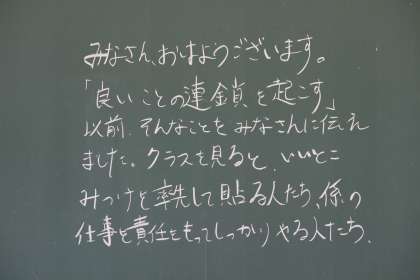 みなさん、おはようございます。
「良いことの連鎖を起こす」
以前、そんなことをみなさんに伝え
ました。クラスを見ると、いいとこ
みつけを率先して貼る人たち、係の
仕事を責任をもってしっかりやる人たち、